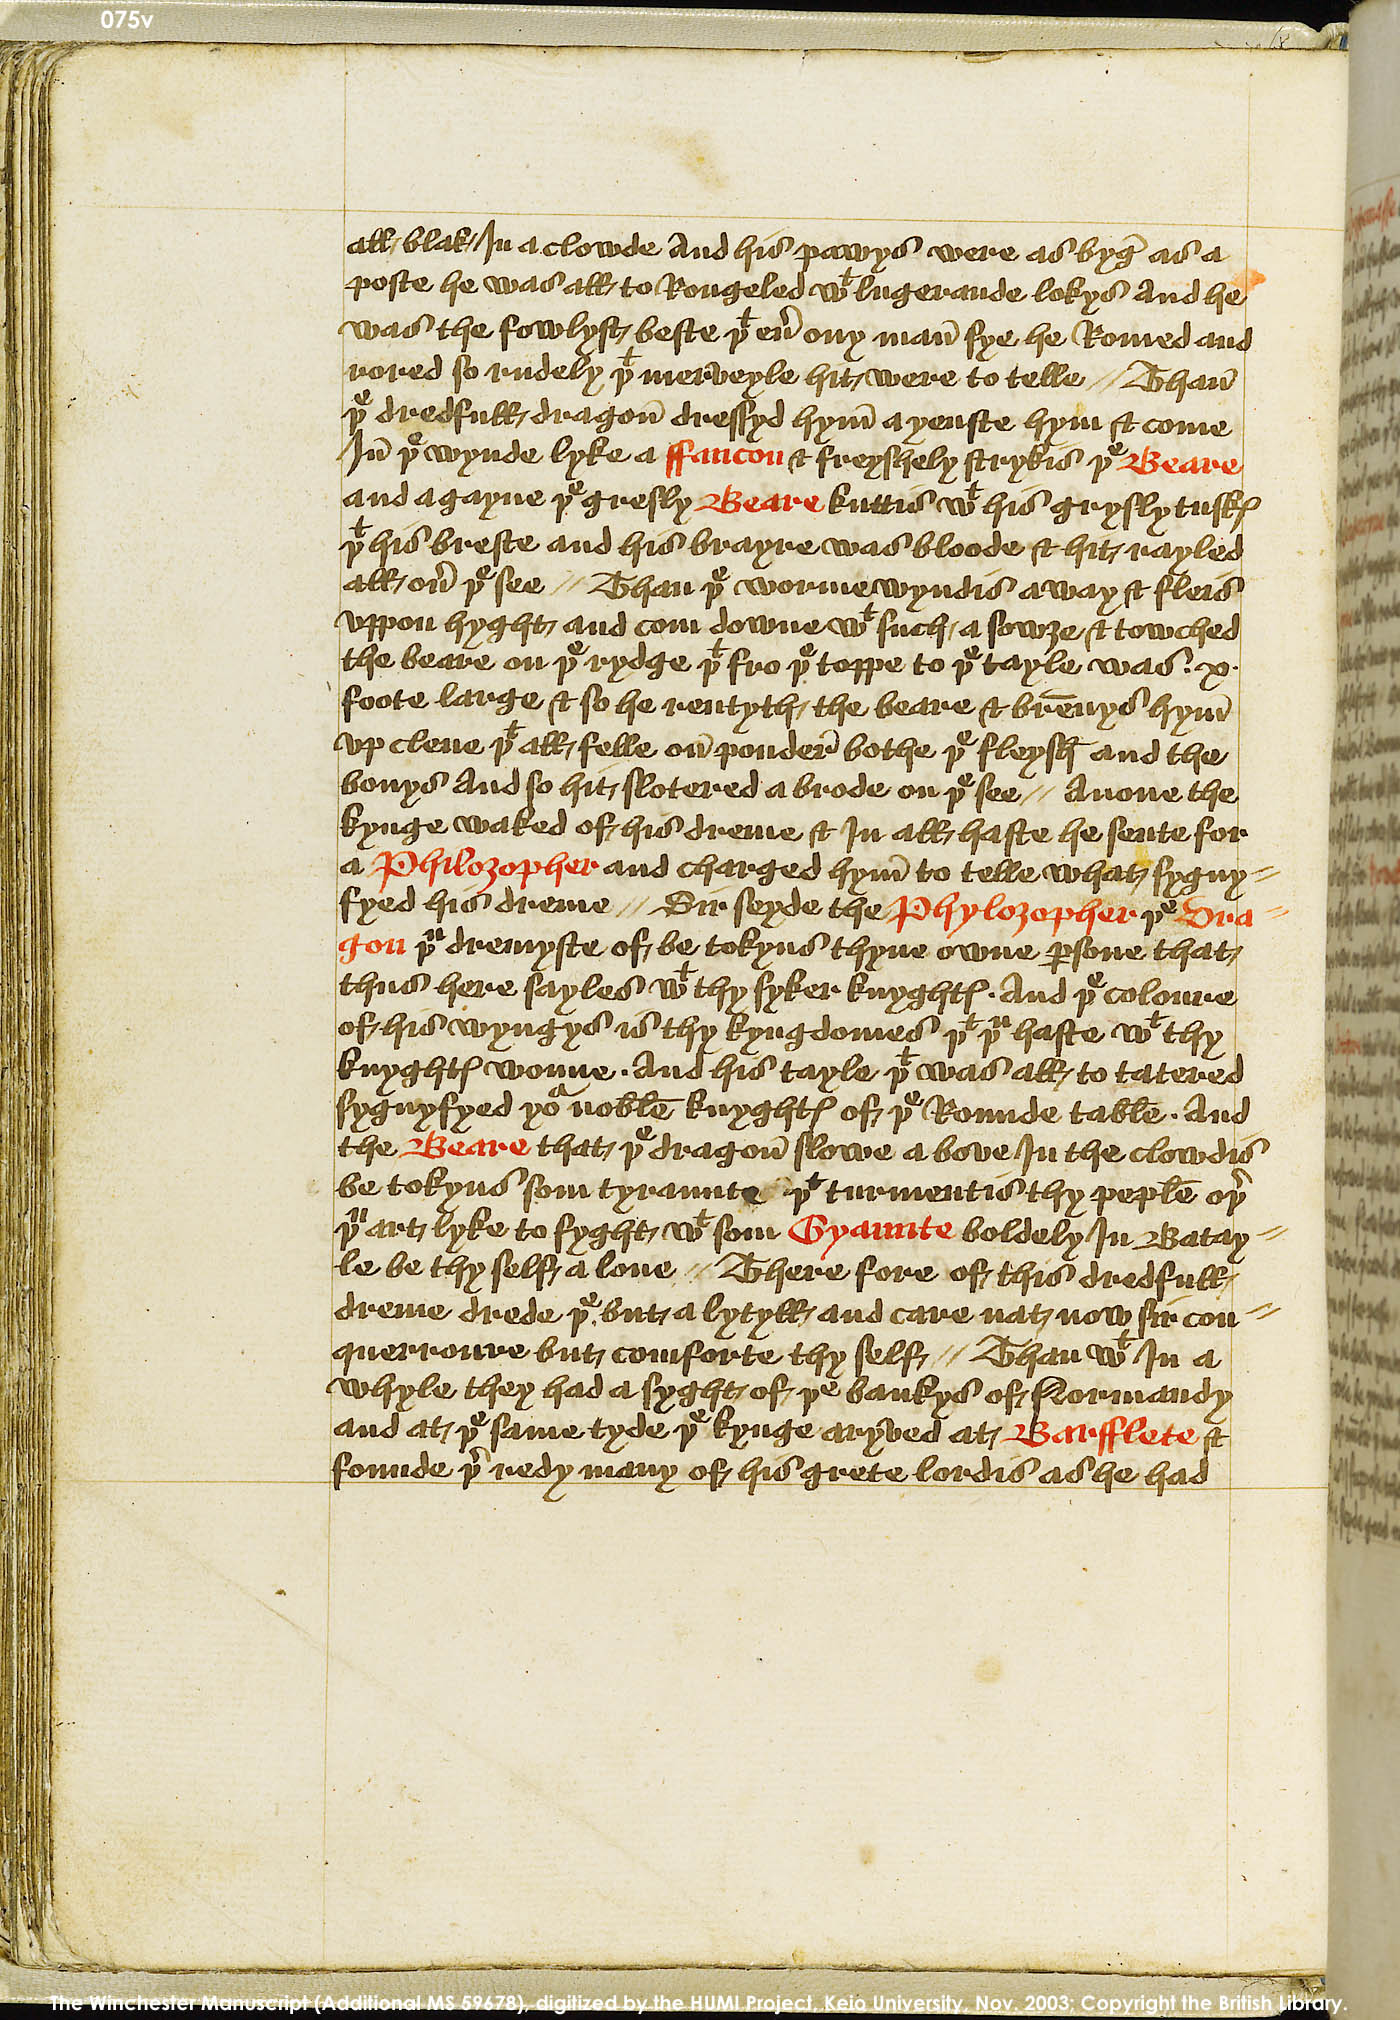 075v
all blak In a clowde And his pawys were as byg as a
poste he was all to Rongeled wᵗ lugerande lokys And he
was the fowlyst beste þᵗ eu̅ ony man̅ sye he Romed and
rored so rudely þᵗ merveyle hit were to telle // Than̅
þᵉ dredfull dragon̅ dressyd hym̅ a yenste hym & come
In̅ þᵉ wynde lyke a ffaucon & freyshely strykis þᵉ Beare
and agayne þᵉ gresly Beare kuttis wᵗ his grysly tuskꝭ
þᵗ his breste and his brayre was bloode & hit rayled
all ou̅ þᵉ see // Than þᵉ worme wyndis away & fleis
vppon hyght and com downe wᵗ such a sowze & towched
the beare on þᵉ rydge þᵗ fro þᵉ toppe to þᵉ tayle was .x.
foote large & so he rentyth the beare & bren̅ys hym̅
vp clene þᵗ all felle on̅ ponder̅ bothe þᵉ fleysh̅ and the
bonys And so hit flotered a brode on þᵉ see // Anone the
kynge waked of his dreme & In all haste he sente for
a Philozopher and charged hym̅ to telle what sygny=
fyed his dreme // Sir seyde the Phylozopher þᵉ Dra=
gon þᵘ dremyste of be tokyns thyne owne ꝑsone that
thus here sayles wᵗ thy syker knyghtꝭ . And þᵉ coloure
of his wyngys is thy kyngdomes þᵗ þᵘ haste wᵗ thy
knyghtꝭ wonne . And his tayle þᵗ was all to tatered
sygnyfyed yoᵃ noble̅ knyghtꝭ of þᵉ Rounde table̅ . And
the Beare that þᵉ dragon̅ slowe a bove In the clowdis
be tokyns som tyraunte þᵗ turmentis thy peple̅ oþ̅
þᵘ art lyke to fyght wᵗ som Gyaunte boldely In Batay=
le be thy self a lone // There fore of this dredfull
dreme drede þᵉ but a lytyll and care nat now sir con=
querroure but comforte thy self // Than wᵗ In a
whyle they had a syght of þᵉ bankys of Normandy
and at þᵉ same tyde þᵉ kynge aryved at Barfflete &
founde þ̅ redy many of his grete lordis as he had
The Winchester Manuscript (Additional MS 59678), digitized by the HUMI Project, Keio University, Nov. 2003; Copyright the British Library.